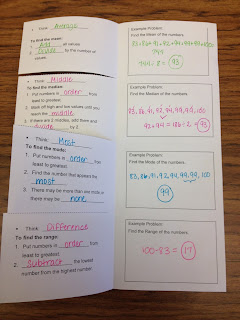 • Think: Average
To find the mean:
1. Add all values.
2. Divide by the number of
values.
Example Problem:
Find the Mean of the numbers.
83+86+91+92+94+99+99+100
744
744÷8 = 93
• Think: Middle
To find the median:
1. Put numbers in order from
least to greatest.
2. Mark off high and low values until you
reach the middle.
3. If there are 2 middles, add them and
divide by 2.
Example Problem:
Find the Median of the numbers.
83, 86, 91, 92, 94, 99, 99, 100
92+94 = 186÷2 = 93
• Think: Most
To find the mode:
1. Put numbers in order from
least to greatest.
2. Find the number that appears the
most.
3. There may be more than one mode or
there may be none.
Example Problem:
Find the Mode of the numbers.
83, 86, 91, 92, 94, 99, 99, 100
99
• Think: Difference
To find the range:
1. Put numbers in order from
least to greatest.
2. Subtract the lowest
number from the highest number.
Example Problem:
Find the Range of the numbers.
100-83 = 17